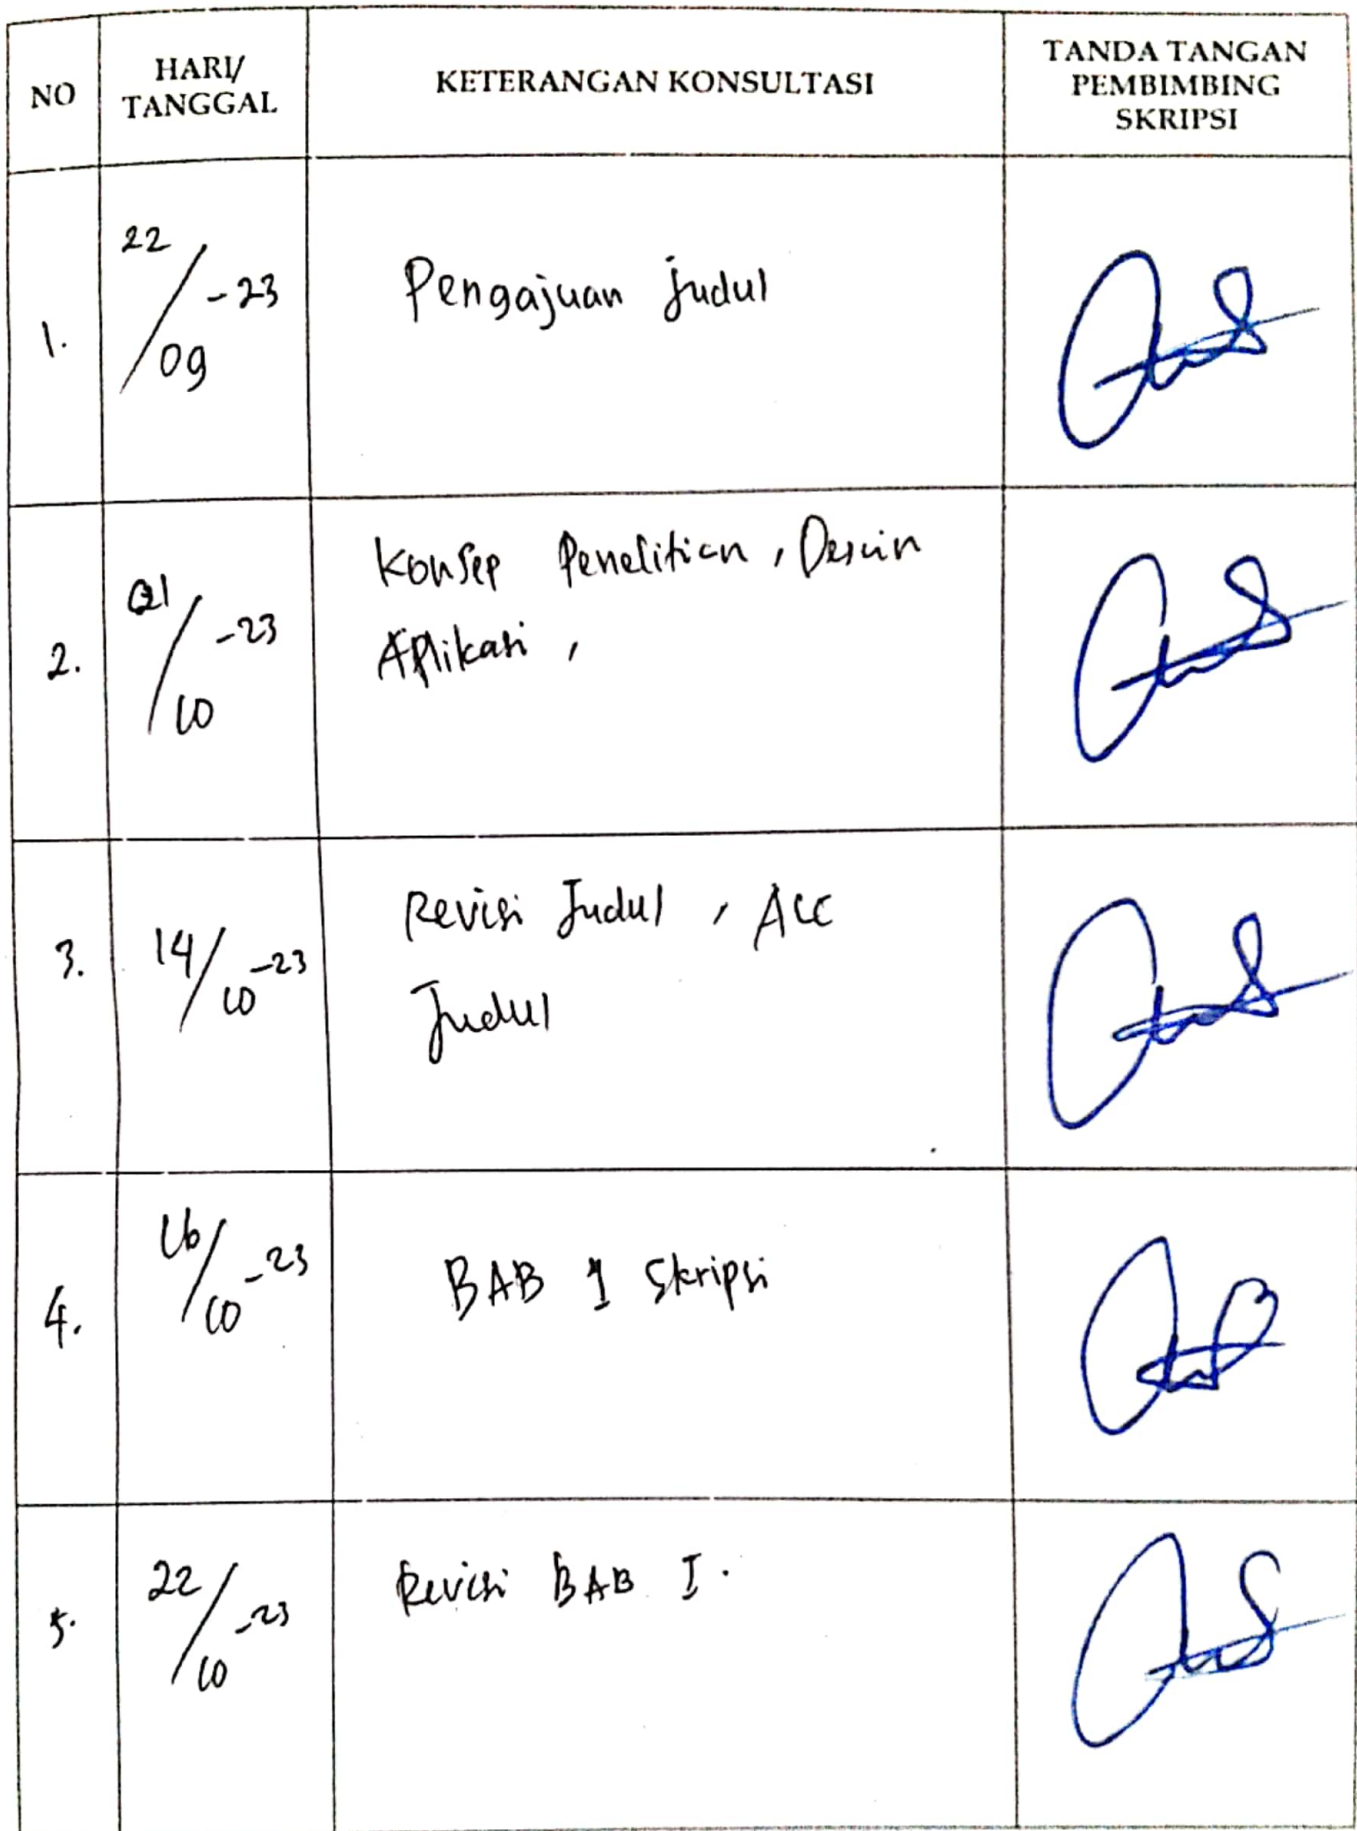 NO
HARI/
TANGGAL
KETERANGAN KONSULTASI
TANDA TANGAN
PEMBIMBING
SKRIPSI
1.
22/09-23
Pengajuan judul
2.
/10-23
Konsep Penelitian, Desain
Aplikasi,
3.
14/10-23
Revisi Judul, ACC
Judul
4.
16/10-23
BAB 1 Skripsi
5.
22/10-23
Revisi BAB I.